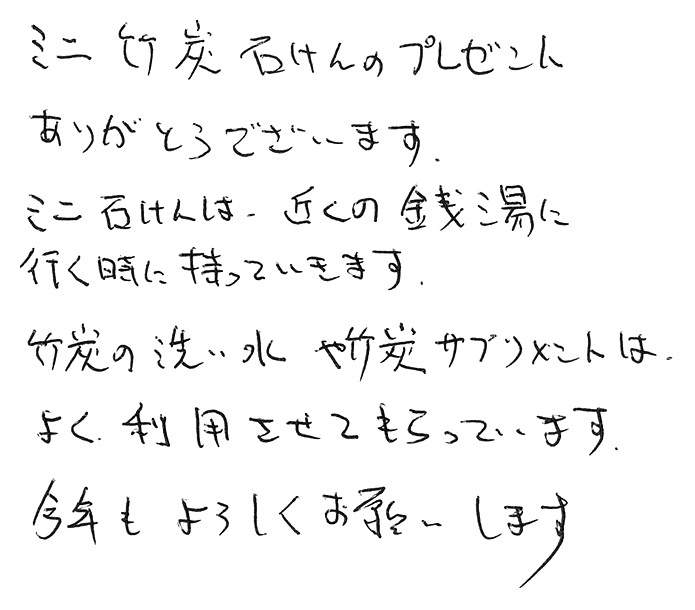 ミニ竹炭石けんのプレゼント
ありがとうございます.
ミニ石けんは、近くの銭湯に
行く時に持っていきます.
竹炭の洗い水や竹炭サプリメントは、
よく利用させてもらっています.
今年もよろしくお願いします